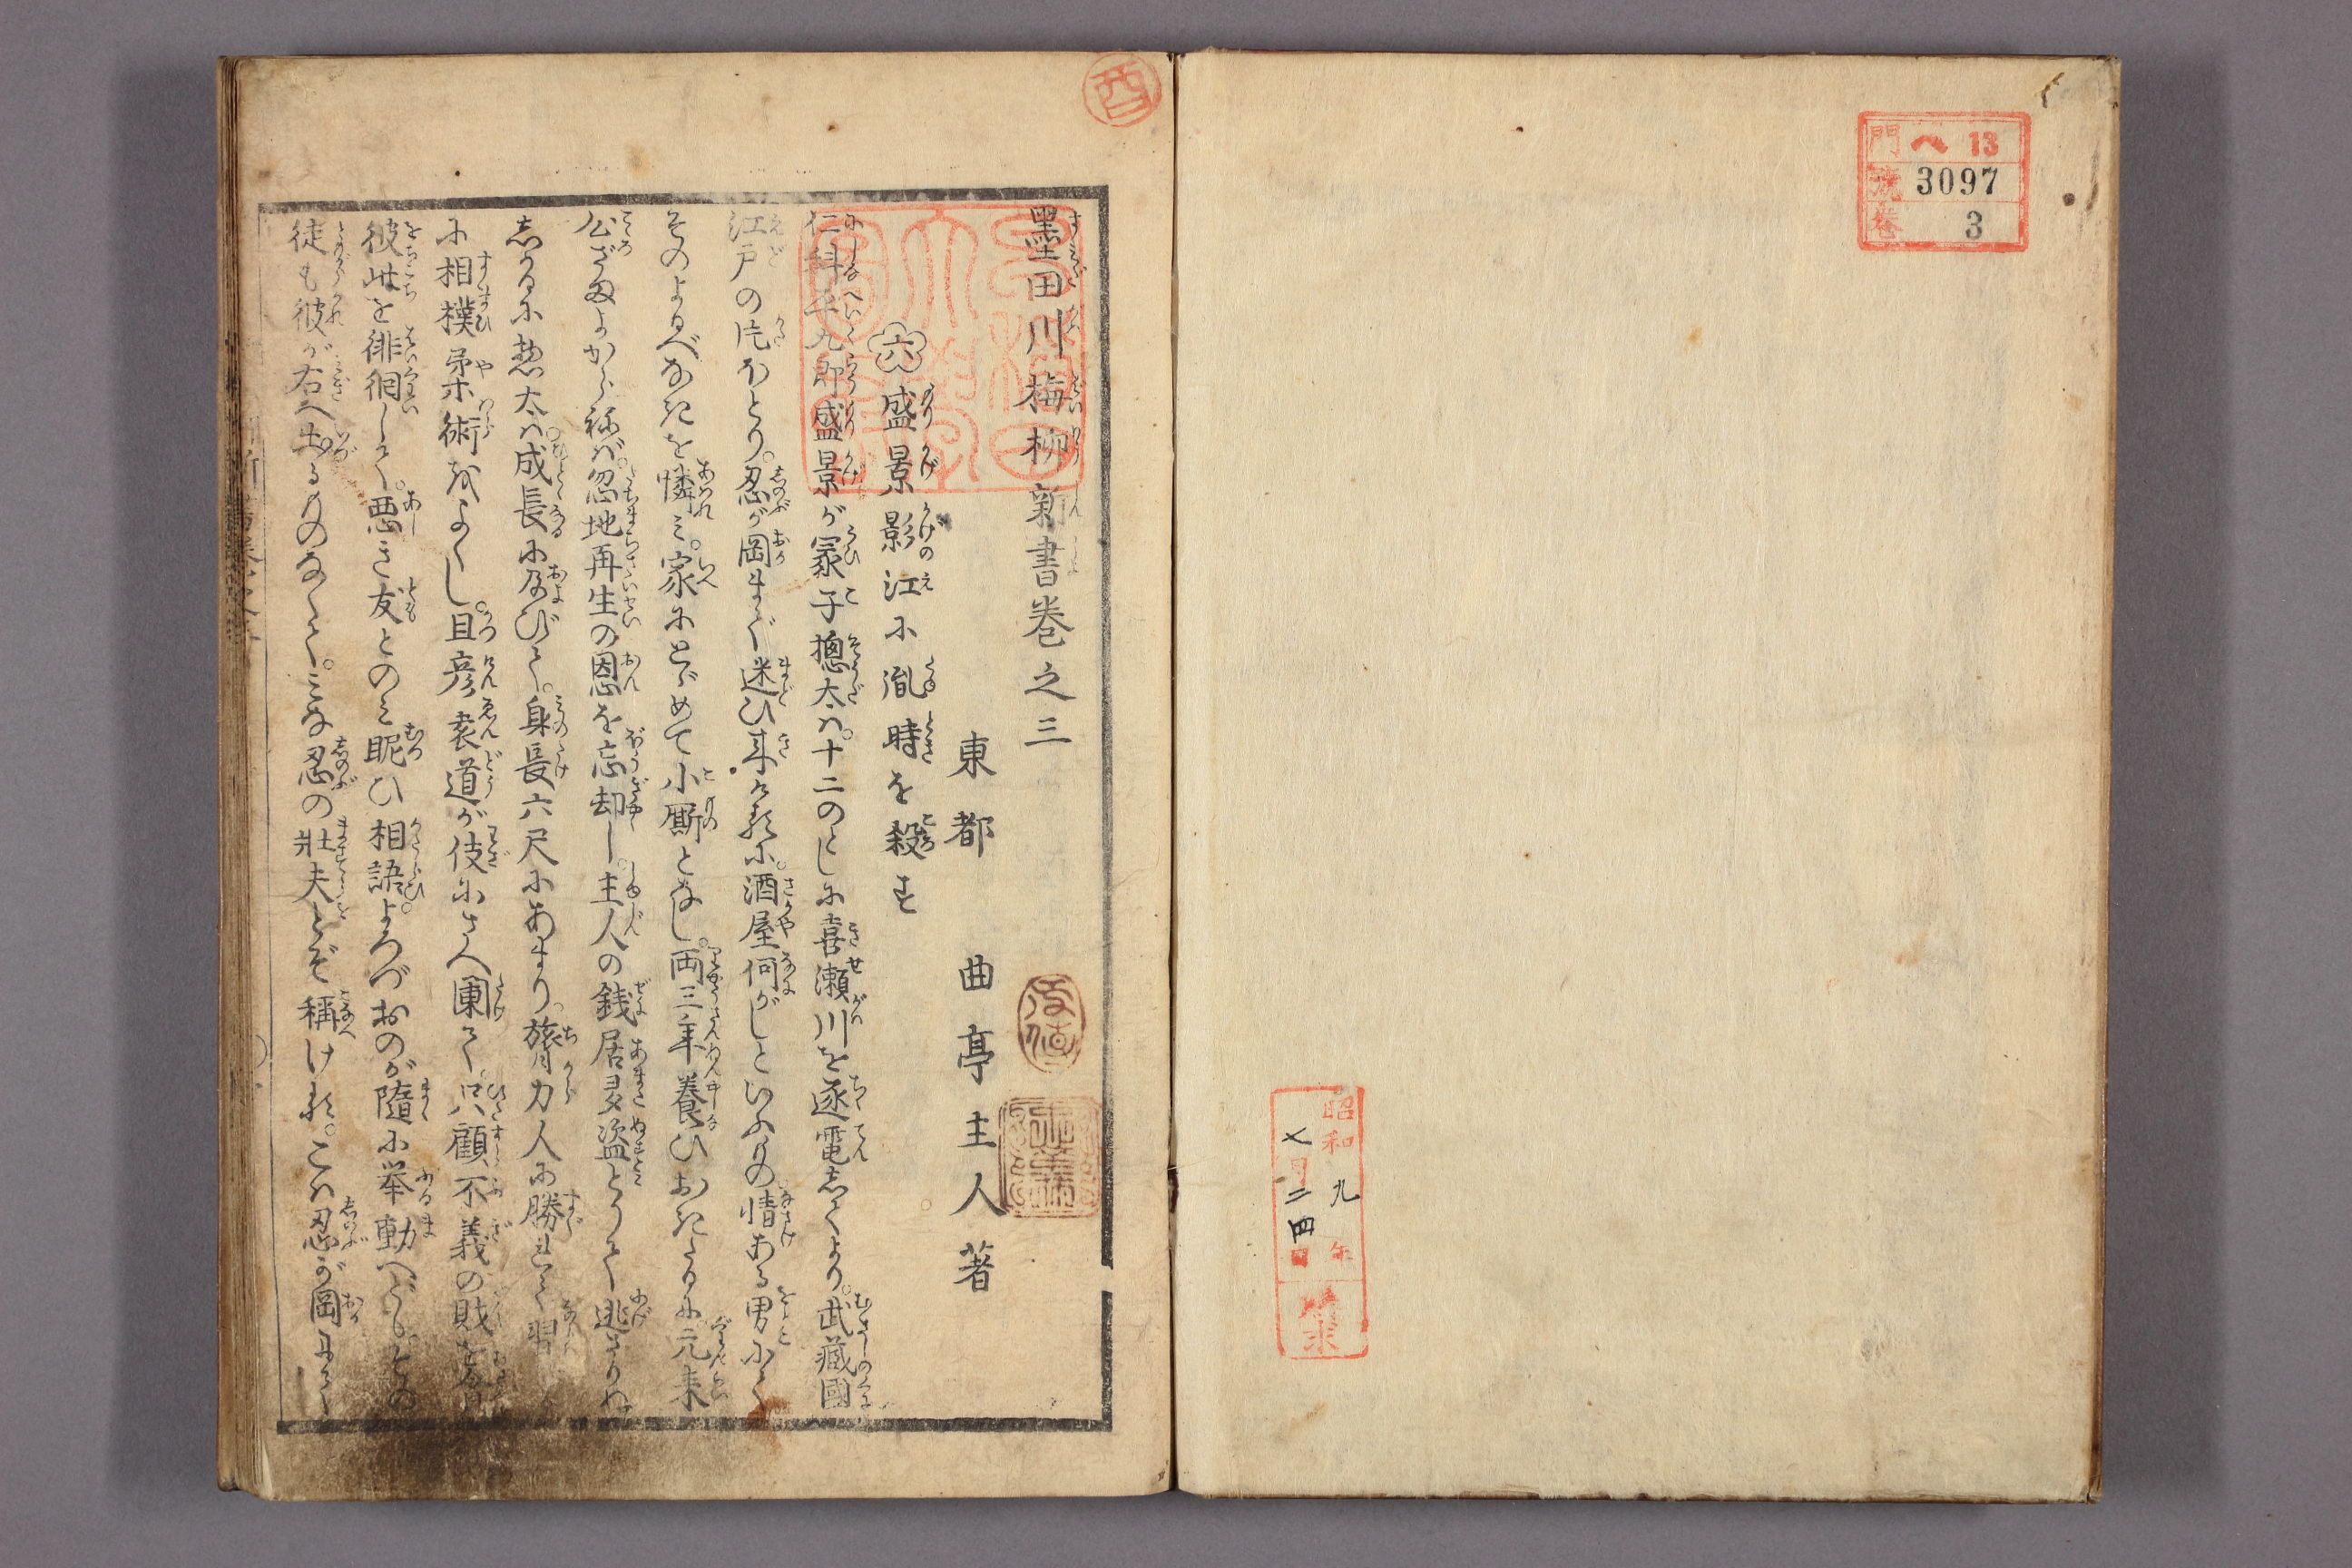 門 へ 13
號 3097
巻 3
昭和九年
七月二四日
購求
酉
墨田川梅柳新書巻之三
東都 曲亭主人著
六 盛景影江に胤時を殺す
仁科平九郎盛景が冢子摠太は。十二のとしに喜瀬川を逐電してより。武藏國
江戸の片ほとり。忍が岡まで迷ひ来けるに。酒屋何がしといふものゝ情ある男にて
そのよるべなきを憐み。家にとゞめて小厮となし。両三年養ひおきたるに元来
公ざまよからねば。忽地再生の恩を忘却し。主人の銭居多盗とりて逃さりぬ
しかるに惣太は成長に及びて。身長六尺にあまり。膂力人に勝れて習
に相撲柔術をよくし。且彦袁道が伎にさへ闌て。只顧不義の財を
彼此を徘徊して。悪き友とのみ眤ひ相語。よろづおのが隨に挙動へども。その
徒も彼が右へ出るものなくて。みな忍の壮夫とぞ稱ける。こは忍が岡にて